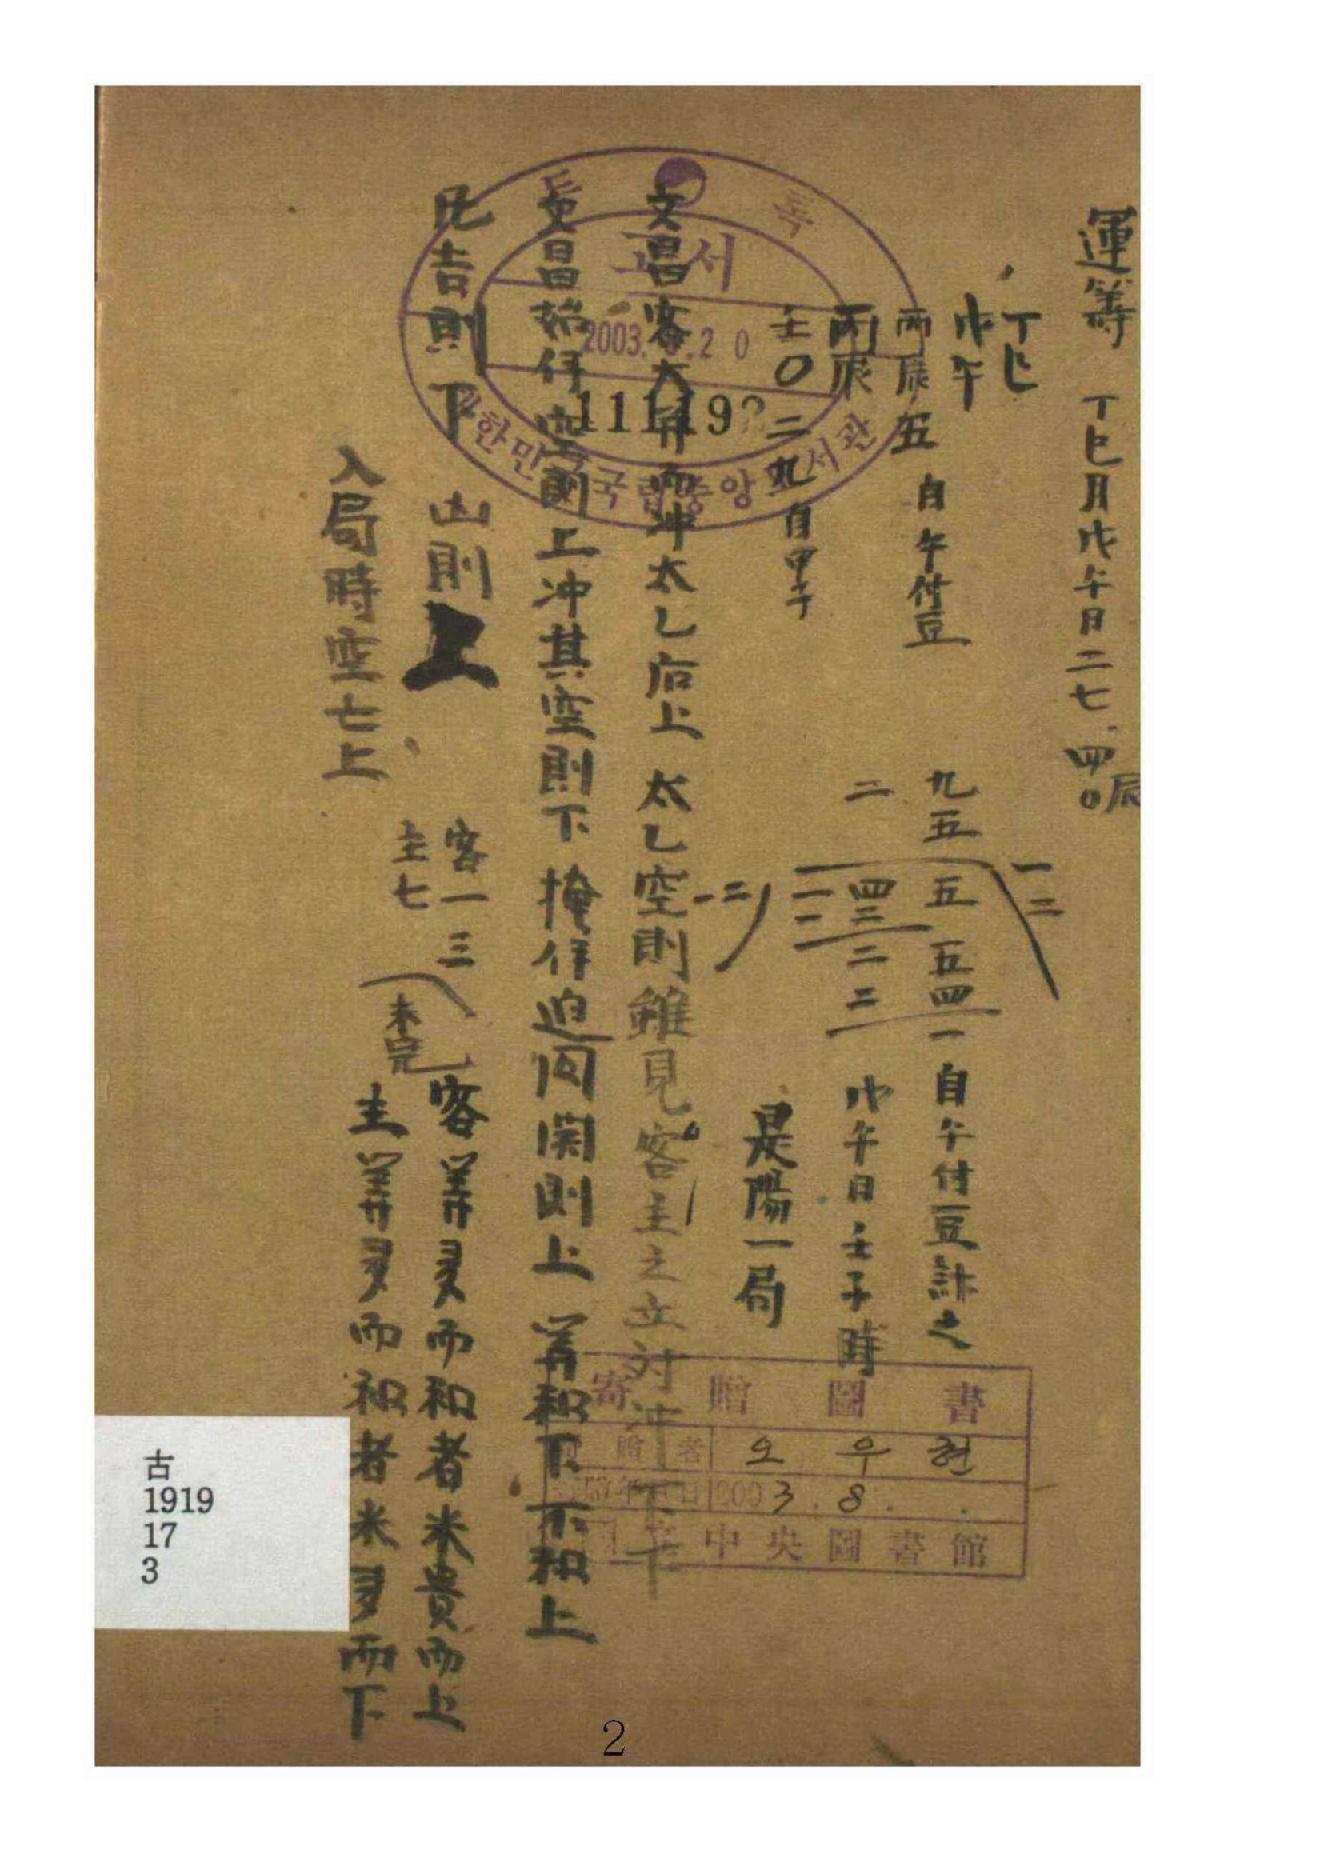 運筭 丁巳月戊午日二七四〇辰
丁巳
戊午
丙辰五 自午付豆
九五五五四一自午付豆計之
一三
丙辰
二 四三二二 戊午日壬子時
一一
壬〇二九自甲子
一二
是陽一局
文昌客大 而冲太乙后上 太乙空則雖見客主之立對冲下下
文昌始 空則上冲其空則下 掩 迫囚関則上 筭和下不和上
凡吉則下 凶則上
客一三
主七
未完
客筭多而和者米貴而上
主筭多而和者米多而下
入局時空亡上
등록
고서
2003. .20
11119
대한민국국립중앙도서관
寄贈圖書
寄贈者 오우현
2003.8.
中央圖書館
古
1919
17
3
2